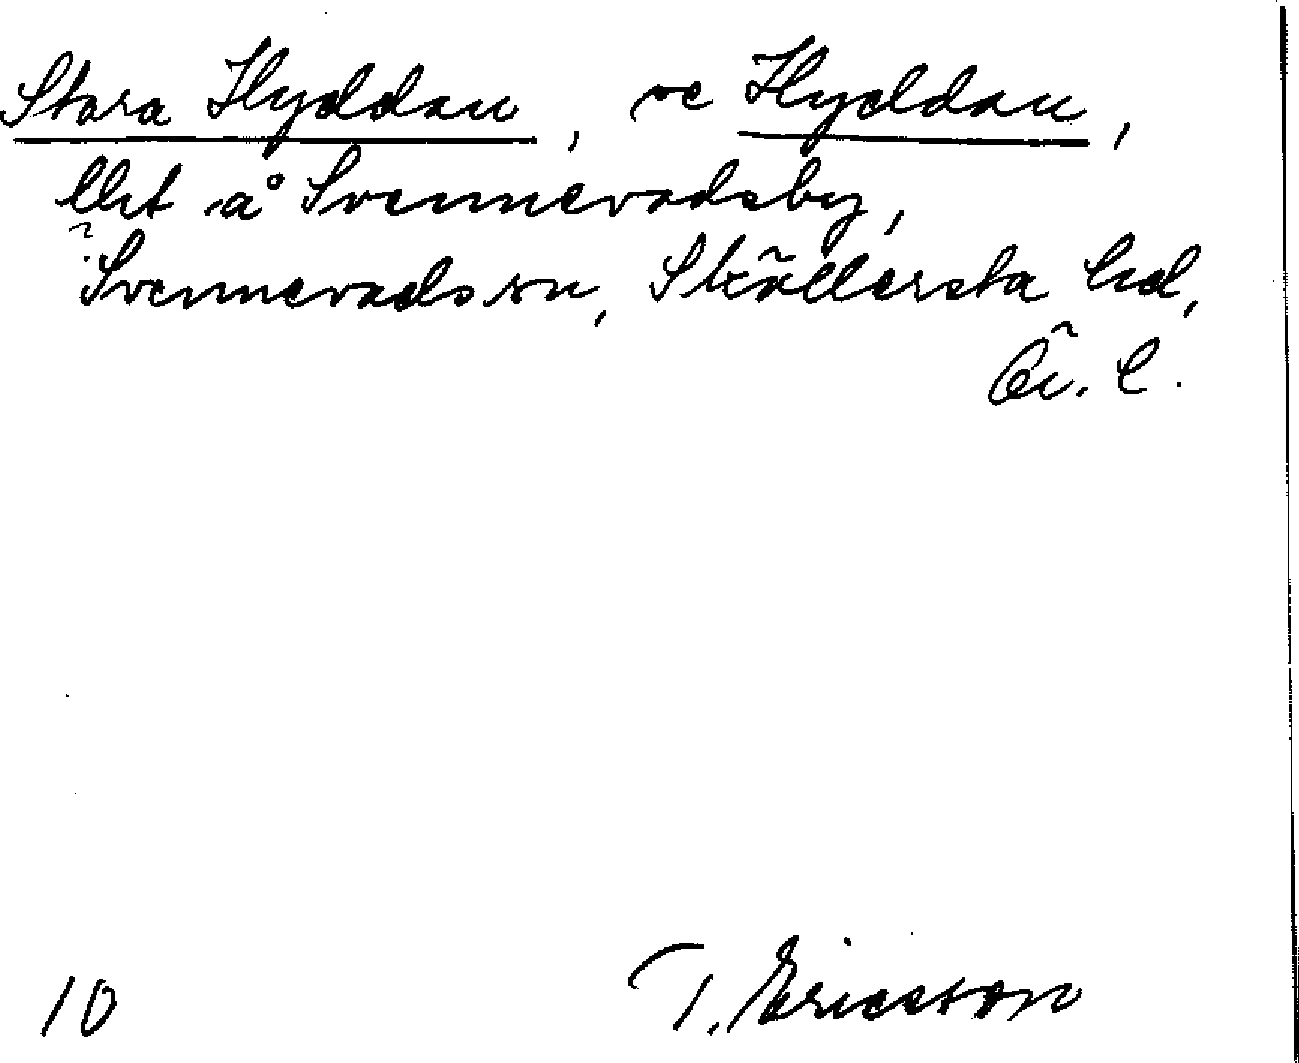 Stora Hyddan, se Hyddan,
lht å Svennevadsby,
Svennevads sn, Sköllersta hd,
Ör. l.
10 T. Ericsson